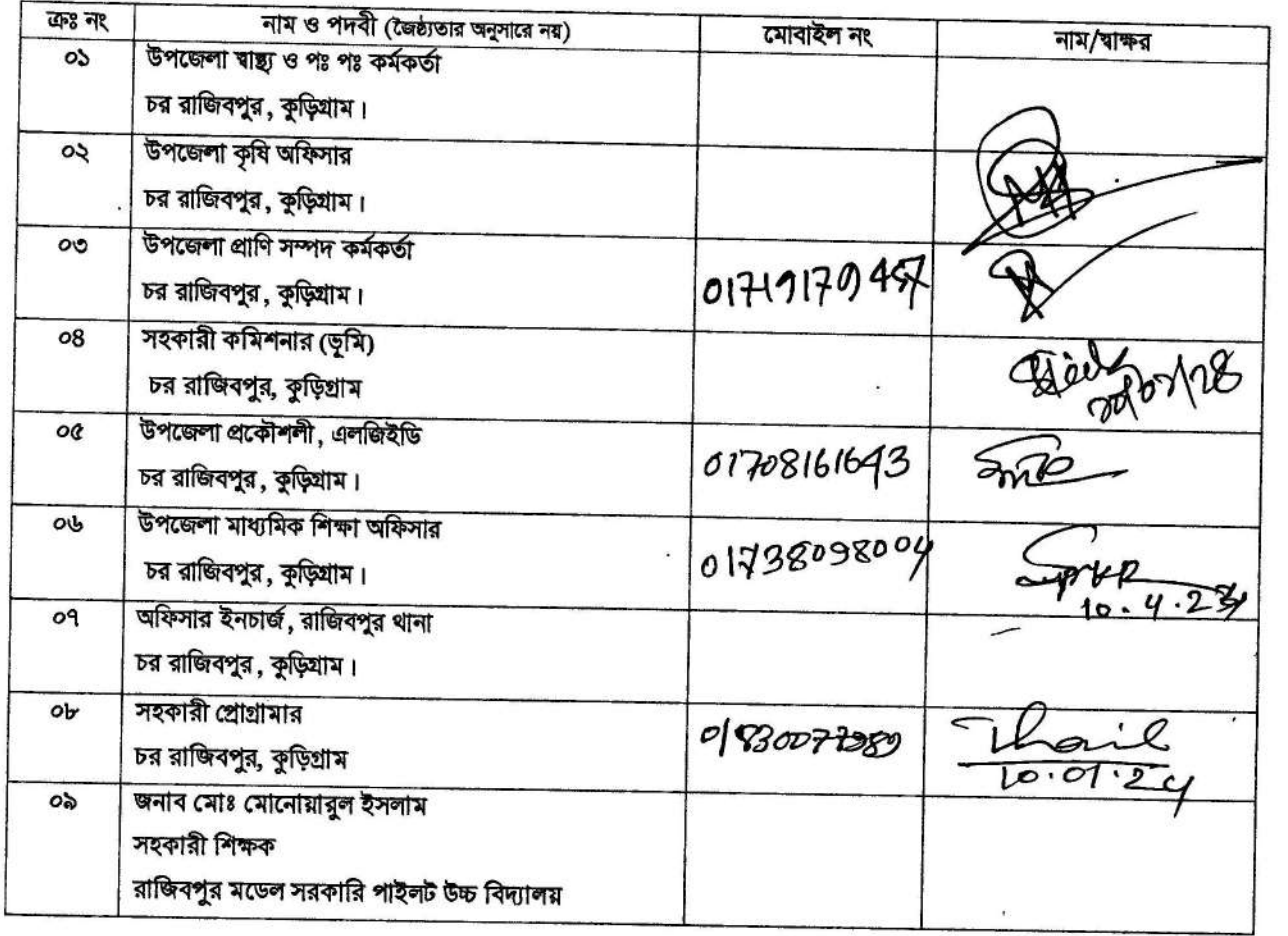 ক্রঃ নং নাম ও পদবী (জৈষ্ঠ্যতার অনুসারে নয়) মোবাইল নং নাম/স্বাক্ষর
০১ উপজেলা স্বাস্থ্য ও পঃ পঃ কর্মকর্তা
চর রাজিবপুর, কুড়িগ্রাম।
০২ উপজেলা কৃষি অফিসার
চর রাজিবপুর, কুড়িগ্রাম।
০৩ উপজেলা প্রাণি সম্পদ কর্মকর্তা
চর রাজিবপুর, কুড়িগ্রাম।
০৪ সহকারী কমিশনার (ভূমি)
চর রাজিবপুর, কুড়িগ্রাম
০৫ উপজেলা প্রকৌশলী, এলজিইডি
চর রাজিবপুর, কুড়িগ্রাম। 01708161643
০৬ উপজেলা মাধ্যমিক শিক্ষা অফিসার
চর রাজিবপুর, কুড়িগ্রাম। 01738098004
০৭ অফিসার ইনচার্জ, রাজিবপুর থানা
চর রাজিবপুর, কুড়িগ্রাম।
০৮ সহকারী প্রোগ্রামার
চর রাজিবপুর, কুড়িগ্রাম
10.01.24
০৯ জনাব মোঃ মোনোয়ারুল ইসলাম
সহকারী শিক্ষক
রাজিবপুর মডেল সরকারি পাইলট উচ্চ বিদ্যালয়